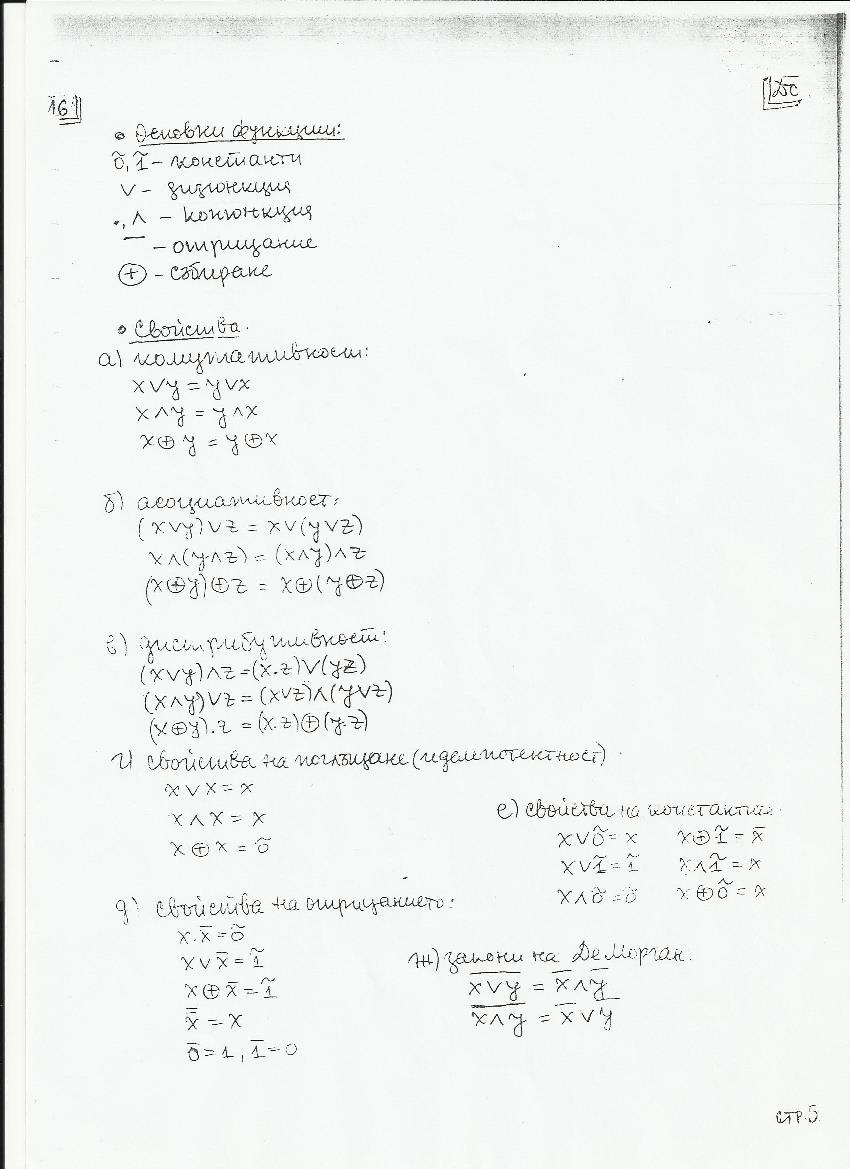 16
ДС
• Основни функции:
õ, ĩ – константи
∨ – дизюнкция
·, ∧ – конюнкция
‾ – отрицание
⊕ – събиране
• Свойства.
а) комутативност:
x∨y = y∨x
x∧y = y∧x
x⊕y = y⊕x
б) асоциативност:
(x∨y)∨z = x∨(y∨z)
x∧(y∧z) = (x∧y)∧z
(x⊕y)⊕z = x⊕(y⊕z)
в) дистрибутивност:
(x∨y)∧z = (x.z)∨(yz)
(x∧y)∨z = (x∨z)∧(y∨z)
(x⊕y).z = (x.z)⊕(y.z)
г) свойства на поглъщане (идемпотентност)
x∨x = x
x∧x = x
x⊕x = 0̃
д) свойства на отрицанието:
x.x̅ = 0̃
x∨x̅ = 1̃
x⊕x̅ = 1̃
x̿ = x
0̅ = 1, 1̅ = 0
е) свойства на константите:
x∨0̃ = x x⊕1̃ = x̅
x∨1̃ = 1̃ x∧1̃ = x
x∧0̃ = 0̃ x⊕0̃ = x
ж) закони на Де Морган:
x̅∨̅y̅ = x̅∧y̅
x̅∧̅y̅ = x̅∨y̅
СТР.5